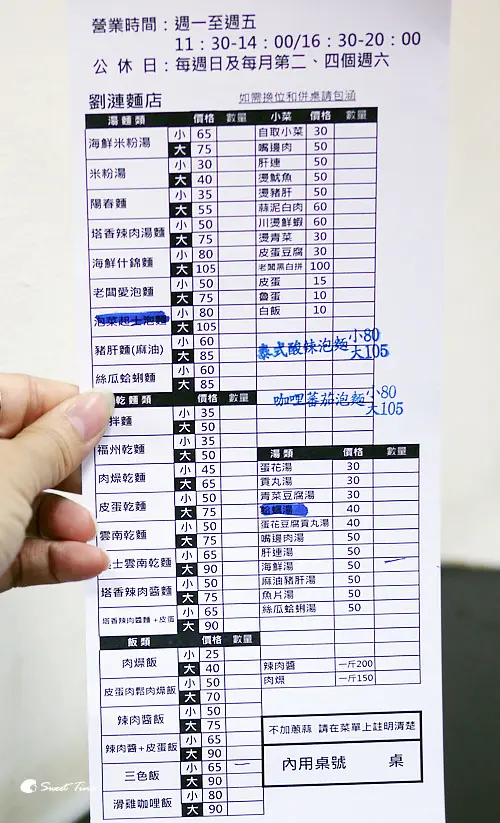 營業時間：週一至週五
11：30-14：00/16：30-20：00
公休日：每週日及每月第二、四個週六
劉漣麵店
如需換位和併桌請包涵
湯麵類 價格 數量
海鮮米粉湯 小 65
大 75
米粉湯 小 30
大 40
陽春麵 小 35
大 55
塔香辣肉湯麵 小 50
大 75
海鮮什錦麵 小 80
大 105
老闆愛泡麵 小 50
大 75
泡菜起士泡麵 小 80
大 105
豬肝麵(麻油) 小 60
大 85
絲瓜蛤蜊麵 小 60
大 85
乾麵類 價格 數量
拌麵 小 35
大 50
福州乾麵 小 35
大 50
肉燥乾麵 小 45
大 65
皮蛋乾麵 小 50
大 75
雲南乾麵 小 50
大 75
士雲南乾麵 小 65
大 90
塔香辣肉醬麵 小 50
大 75
塔香辣肉醬麵+皮蛋 小 65
大 90
飯類 價格 數量
肉燥飯 小 25
大 40
皮蛋肉鬆肉燥飯 小 50
大 70
辣肉醬飯 小 50
大 75
辣肉醬+皮蛋飯 小 65
大 90
三色飯 小 65 一
大 90
滑雞咖哩飯 小 80
大 90
小菜 價格 數量
自取小菜 30
嘴邊肉 50
肝連 50
燙魷魚 50
燙豬肝 50
蒜泥白肉 60
川燙鮮蝦 60
燙青菜 30
皮蛋豆腐 30
老闆黑白拼 100
皮蛋 15
魯蛋 10
白飯 10
泰式酸辣泡麵 小80
大105
咖哩蕃茄泡麵 小80
大105
湯類 價格 數量
蛋花湯 30
貢丸湯 30
青菜豆腐湯 30
湯 40
蛋花豆腐貢丸湯 40
嘴邊肉湯 50
肝連湯 50
海鮮湯 50 一
麻油豬肝湯 50
魚片湯 50
絲瓜蛤蜊湯 50
辣肉醬 一斤200
肉燥 一斤150
不加蔥蒜 請在菜單上註明清楚
內用桌號 桌
Sweet Time